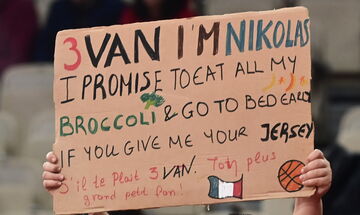 3VAN I'M NIKOLAS
I PROMISE TO EAT ALL MY
BROCCOLI & GO TO BED EARLY
IF YOU GIVE ME YOUR JERSEY
S'il te plait 3VAN. Ton plus
grand petit fan!